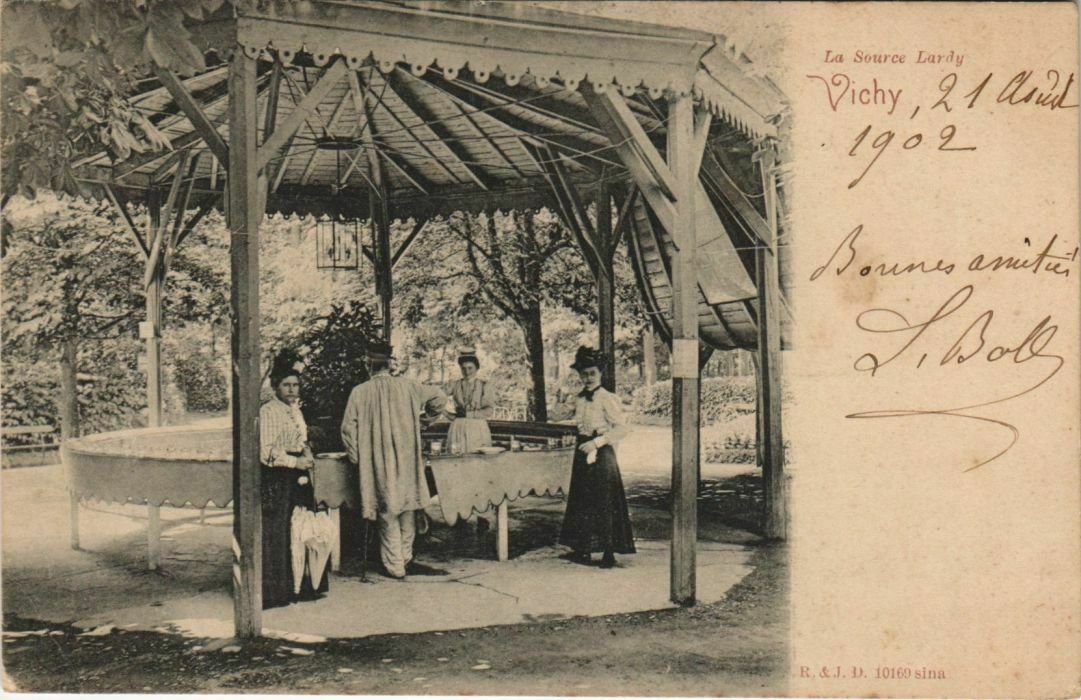 La Source Lardy
Vichy, 21 Août
1902
Bonnes amitiés
L. Boll
R. & J. D. 10169 sina